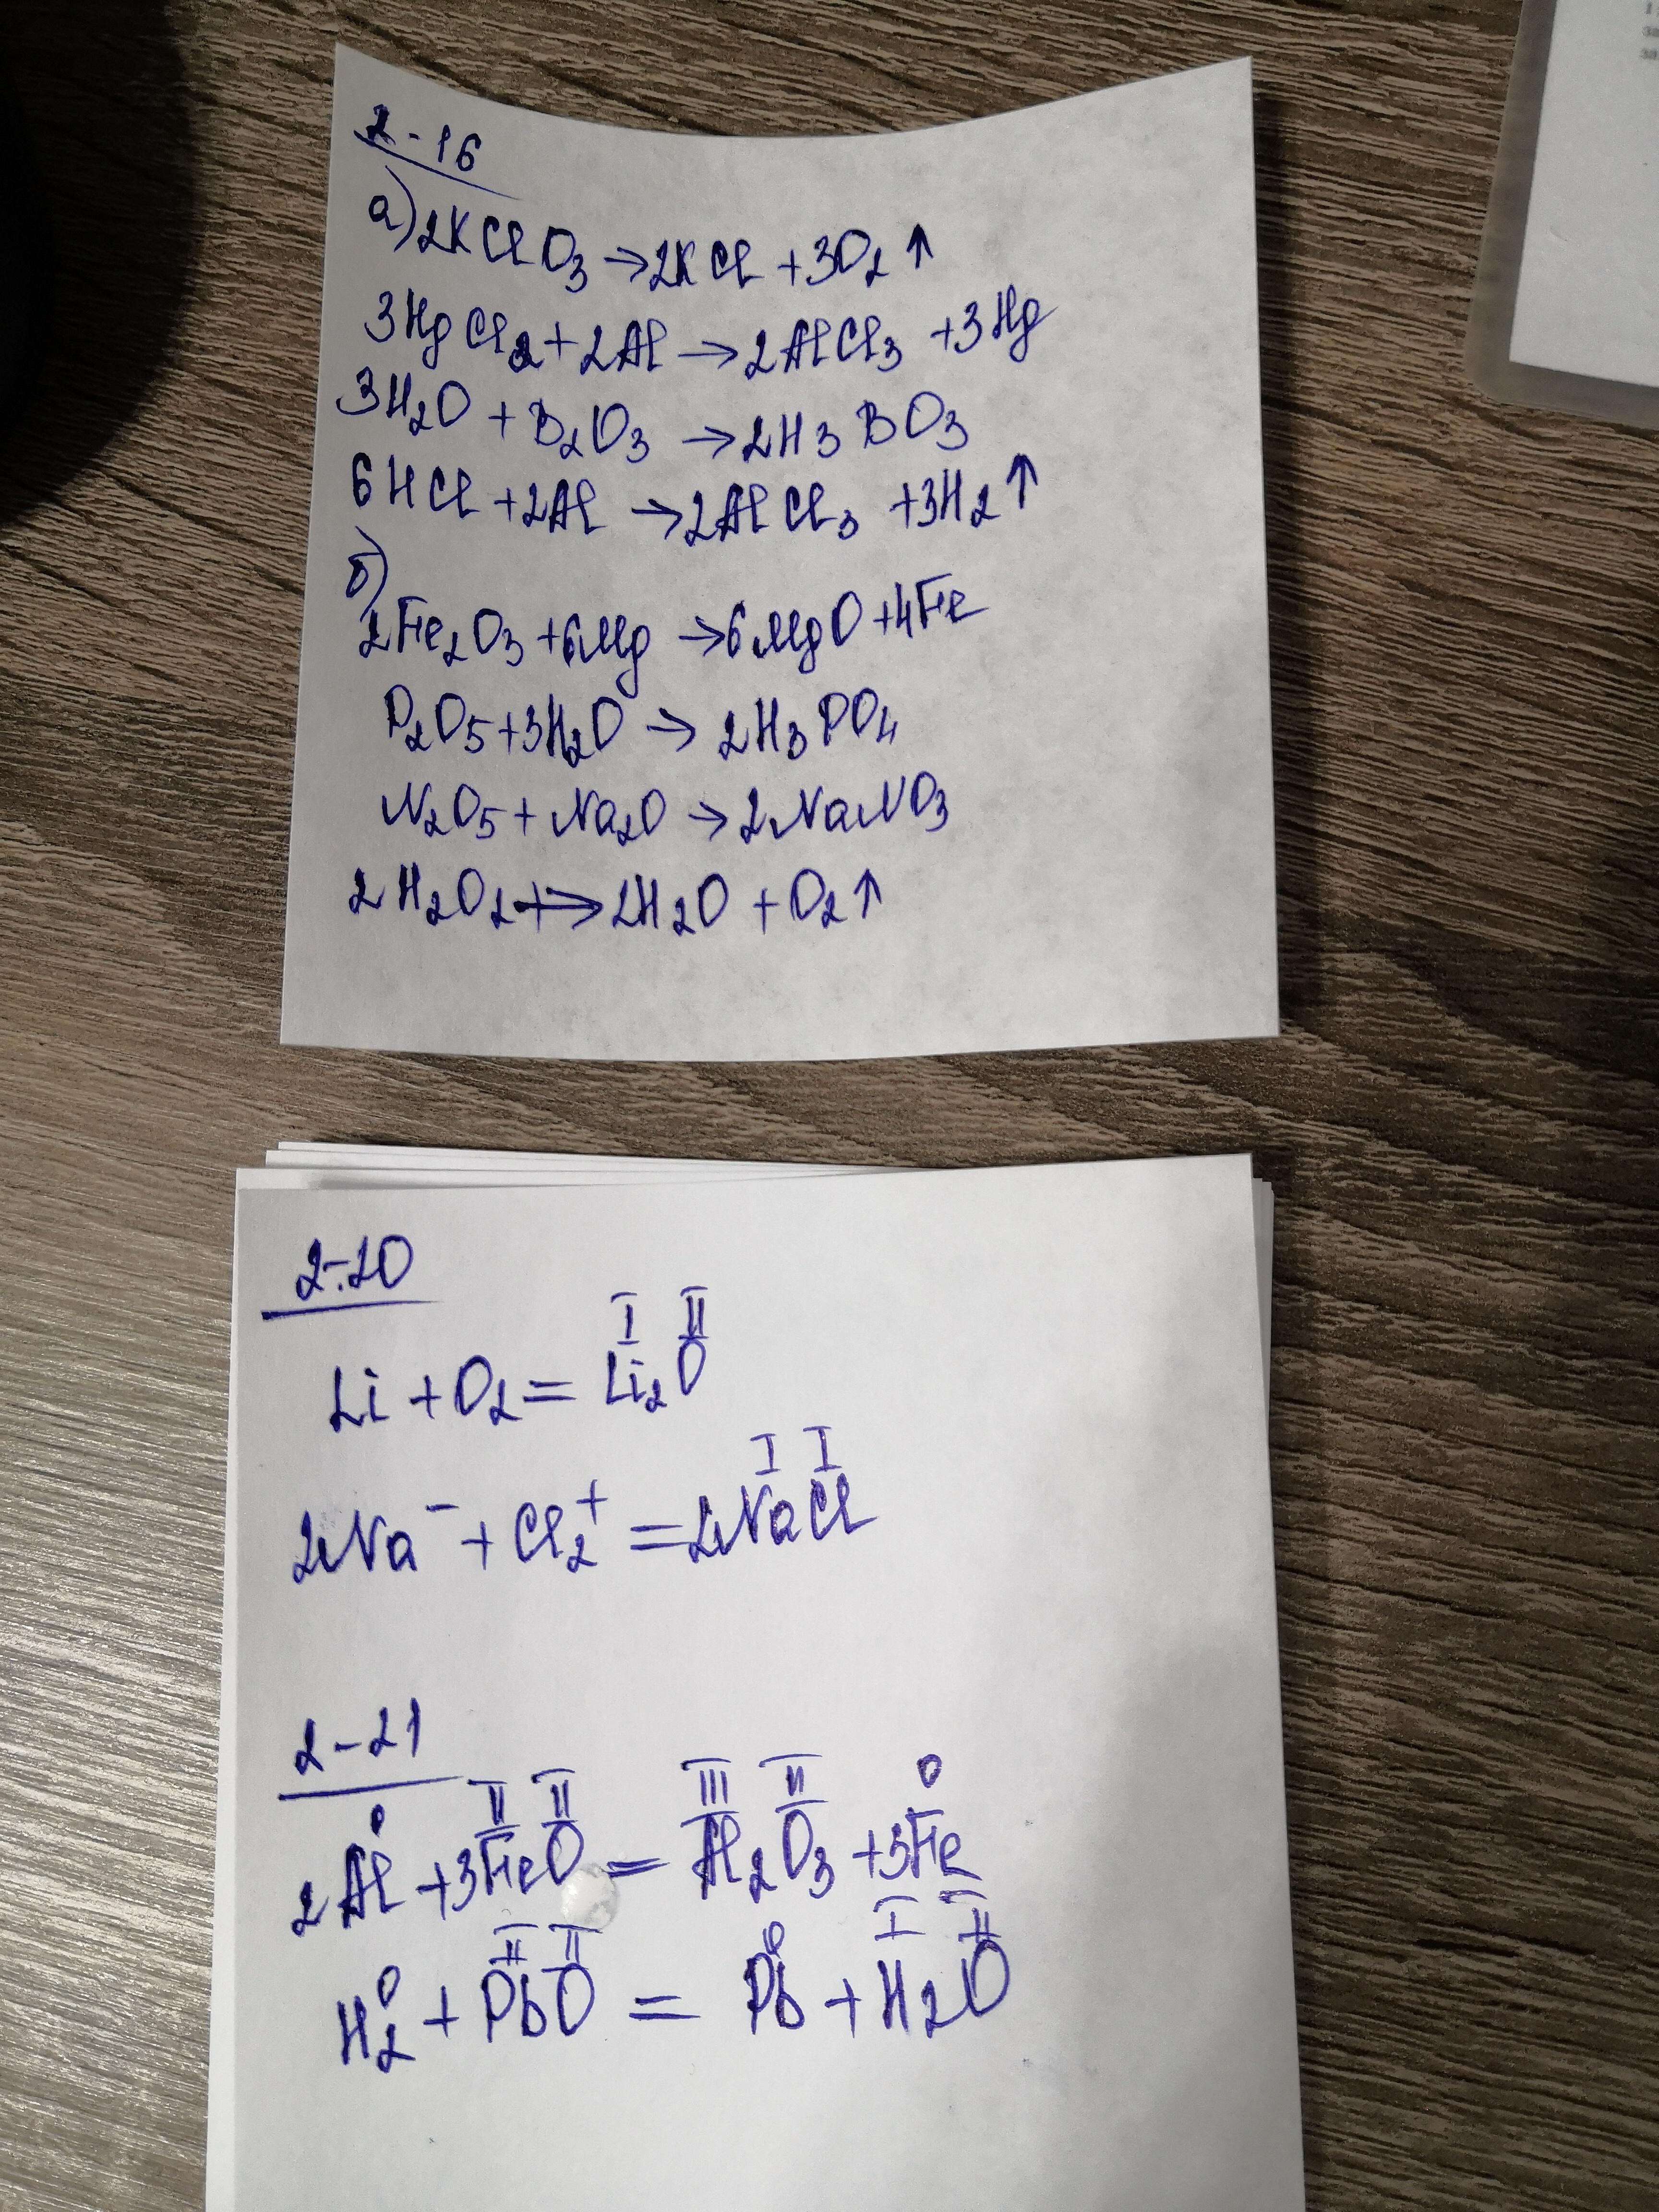 2-16
а) 2KClO₃ → 2KCl + 3O₂ ↑
3HgCl₂ + 2Al → 2AlCl₃ + 3Hg
3H₂O + B₂O₃ → 2H₃BO₃
6HCl + 2Al → 2AlCl₃ + 3H₂ ↑
б)
2Fe₂O₃ + 6Mg → 6MgO + 4Fe
P₂O₅ + 3H₂O → 2H₃PO₄
N₂O₅ + Na₂O → 2NaNO₃
2H₂O₂ → 2H₂O + O₂ ↑
2-20
I II
Li + O₂ = Li₂O
I I
2Na⁻ + Cl₂⁺ = 2NaCl
2-21
0 II II III II 0
2Al + 3FeO = Al₂O₃ + 3Fe
0 II II 0 I II
H₂ + PbO = Pb + H₂O